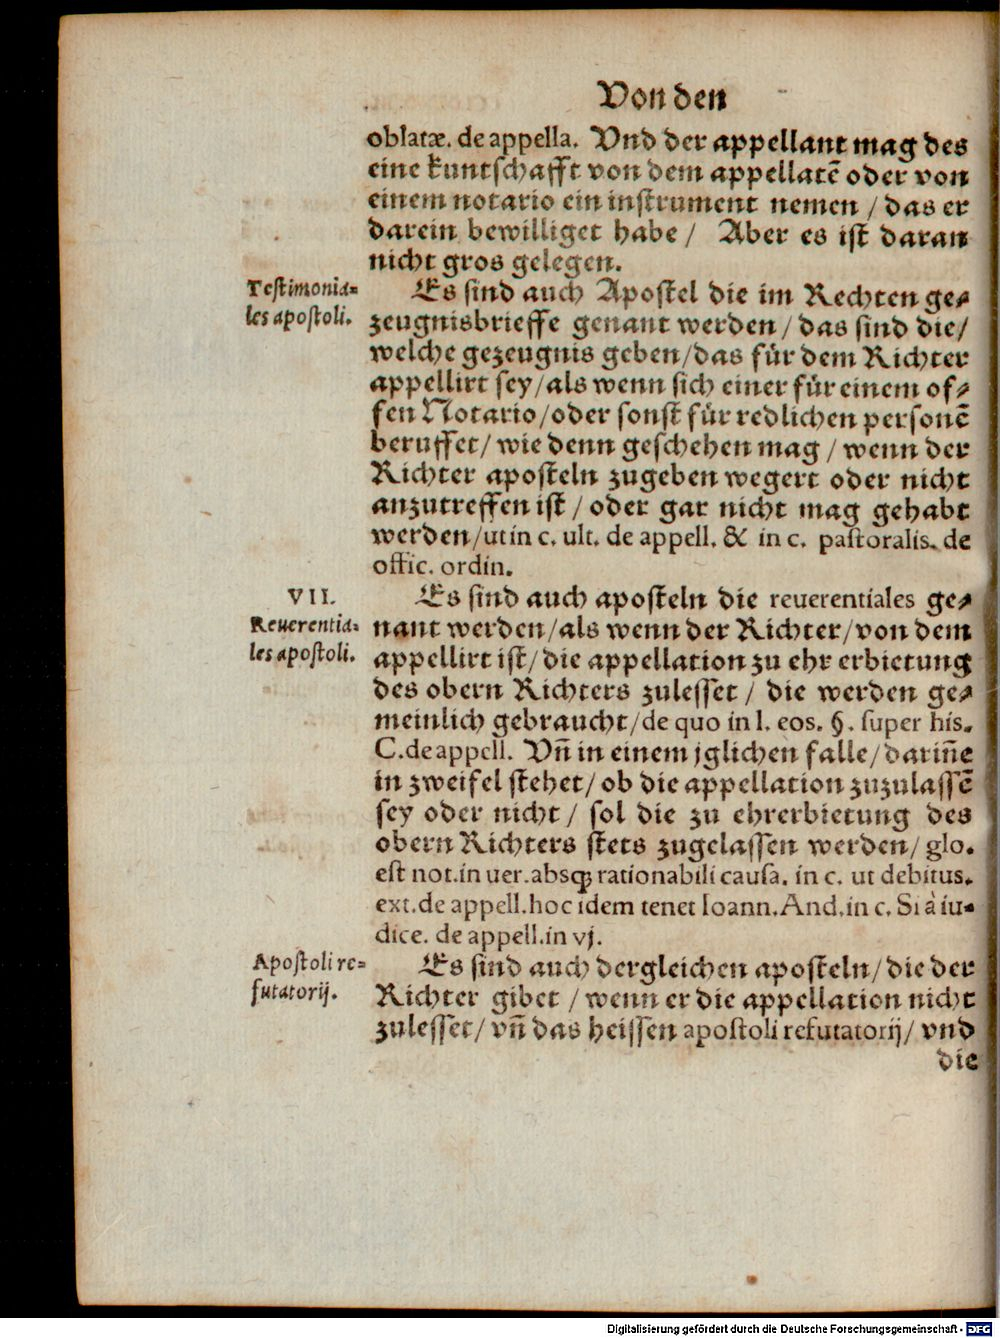 Von den
oblatæ. de appella. Vnd der appellant mag des
eine kuntschafft von dem appellatē oder von
einem notario ein instrument nemen / das er
darein bewilliget habe / Aber es ist daran
nicht gros gelegen.
Testimonia-
les apostoli.
Es sind auch Apostel die im Rechten ge-
zeugnisbrieffe genant werden / das sind die/
welche gezeugnis geben/das für dem Richter
appellirt sey/als wenn sich einer für einem of-
fen Notario/oder sonst für redlichen personē
beruffet/ wie denn geschehen mag / wenn der
Richter aposteln zugeben wegert oder nicht
anzutreffen ist / oder gar nicht mag gehabt
werden/ut in c. ult. de appell. & in c. pastoralis. de
offic. ordin.
VII.
Reuerentia-
les apostoli.
Es sind auch aposteln die reuerentiales ge-
nant werden/als wenn der Richter/von dem
appellirt ist/die appellation zu ehr erbietung
des obern Richters zulesset / die werden ge-
meinlich gebraucht/de quo in l. eos. §. super his.
C.de appell. Vñ in einem jglichen falle/dariñe
in zweifel stehet/ob die appellation zuzulassē
sey oder nicht / sol die zu ehrerbietung des
obern Richters stets zugelassen werden/ glo.
est not.in uer.absqꝫ rationabili causa. in c. ut debitus.
ext.de appell.hoc idem tenet Ioann.And.in c. Si à iu-
dice. de appell.in vj.
Apostoli re-
futatorij.
Es sind auch dergleichen aposteln/die der
Richter gibet / wenn er die appellation nicht
zulesset/ vñ das heissen apostoli refutatorij/ vnd
die
Digitalisierung gefördert durch die Deutsche Forschungsgemeinschaft - DFG